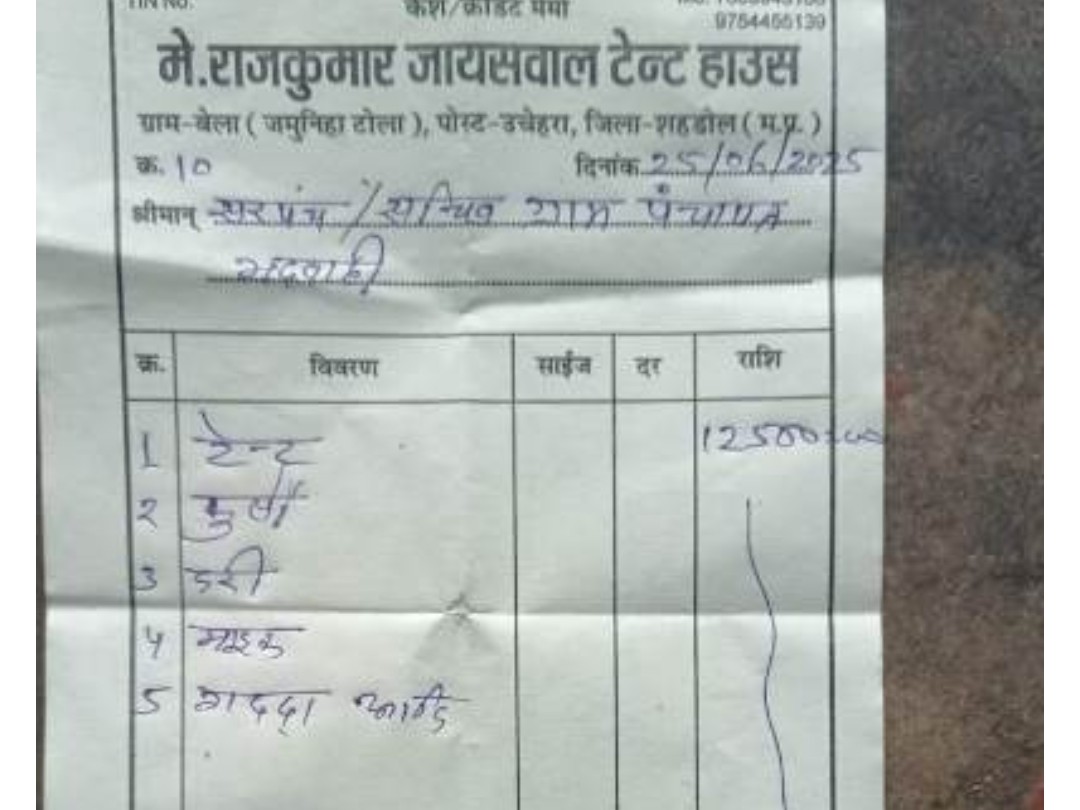 TIN No. कैश/क्रेडिट मेमो
9754455139
मे.राजकुमार जायसवाल टेन्ट हाउस
ग्राम-बेला ( जमुनिहा टोला ), पोस्ट-उचेहरा, जिला-शहडोल ( म.प्र. )
क्र. 10 दिनांक 25/06/2025
श्रीमान् सरपंच / सचिव ग्राम पंचायत
भदवाही
क्र. विवरण साईज दर राशि
1 टेन्ट 12500=00
2 कुर्सी
3 दरी
4 माइक
5 गददा आदि